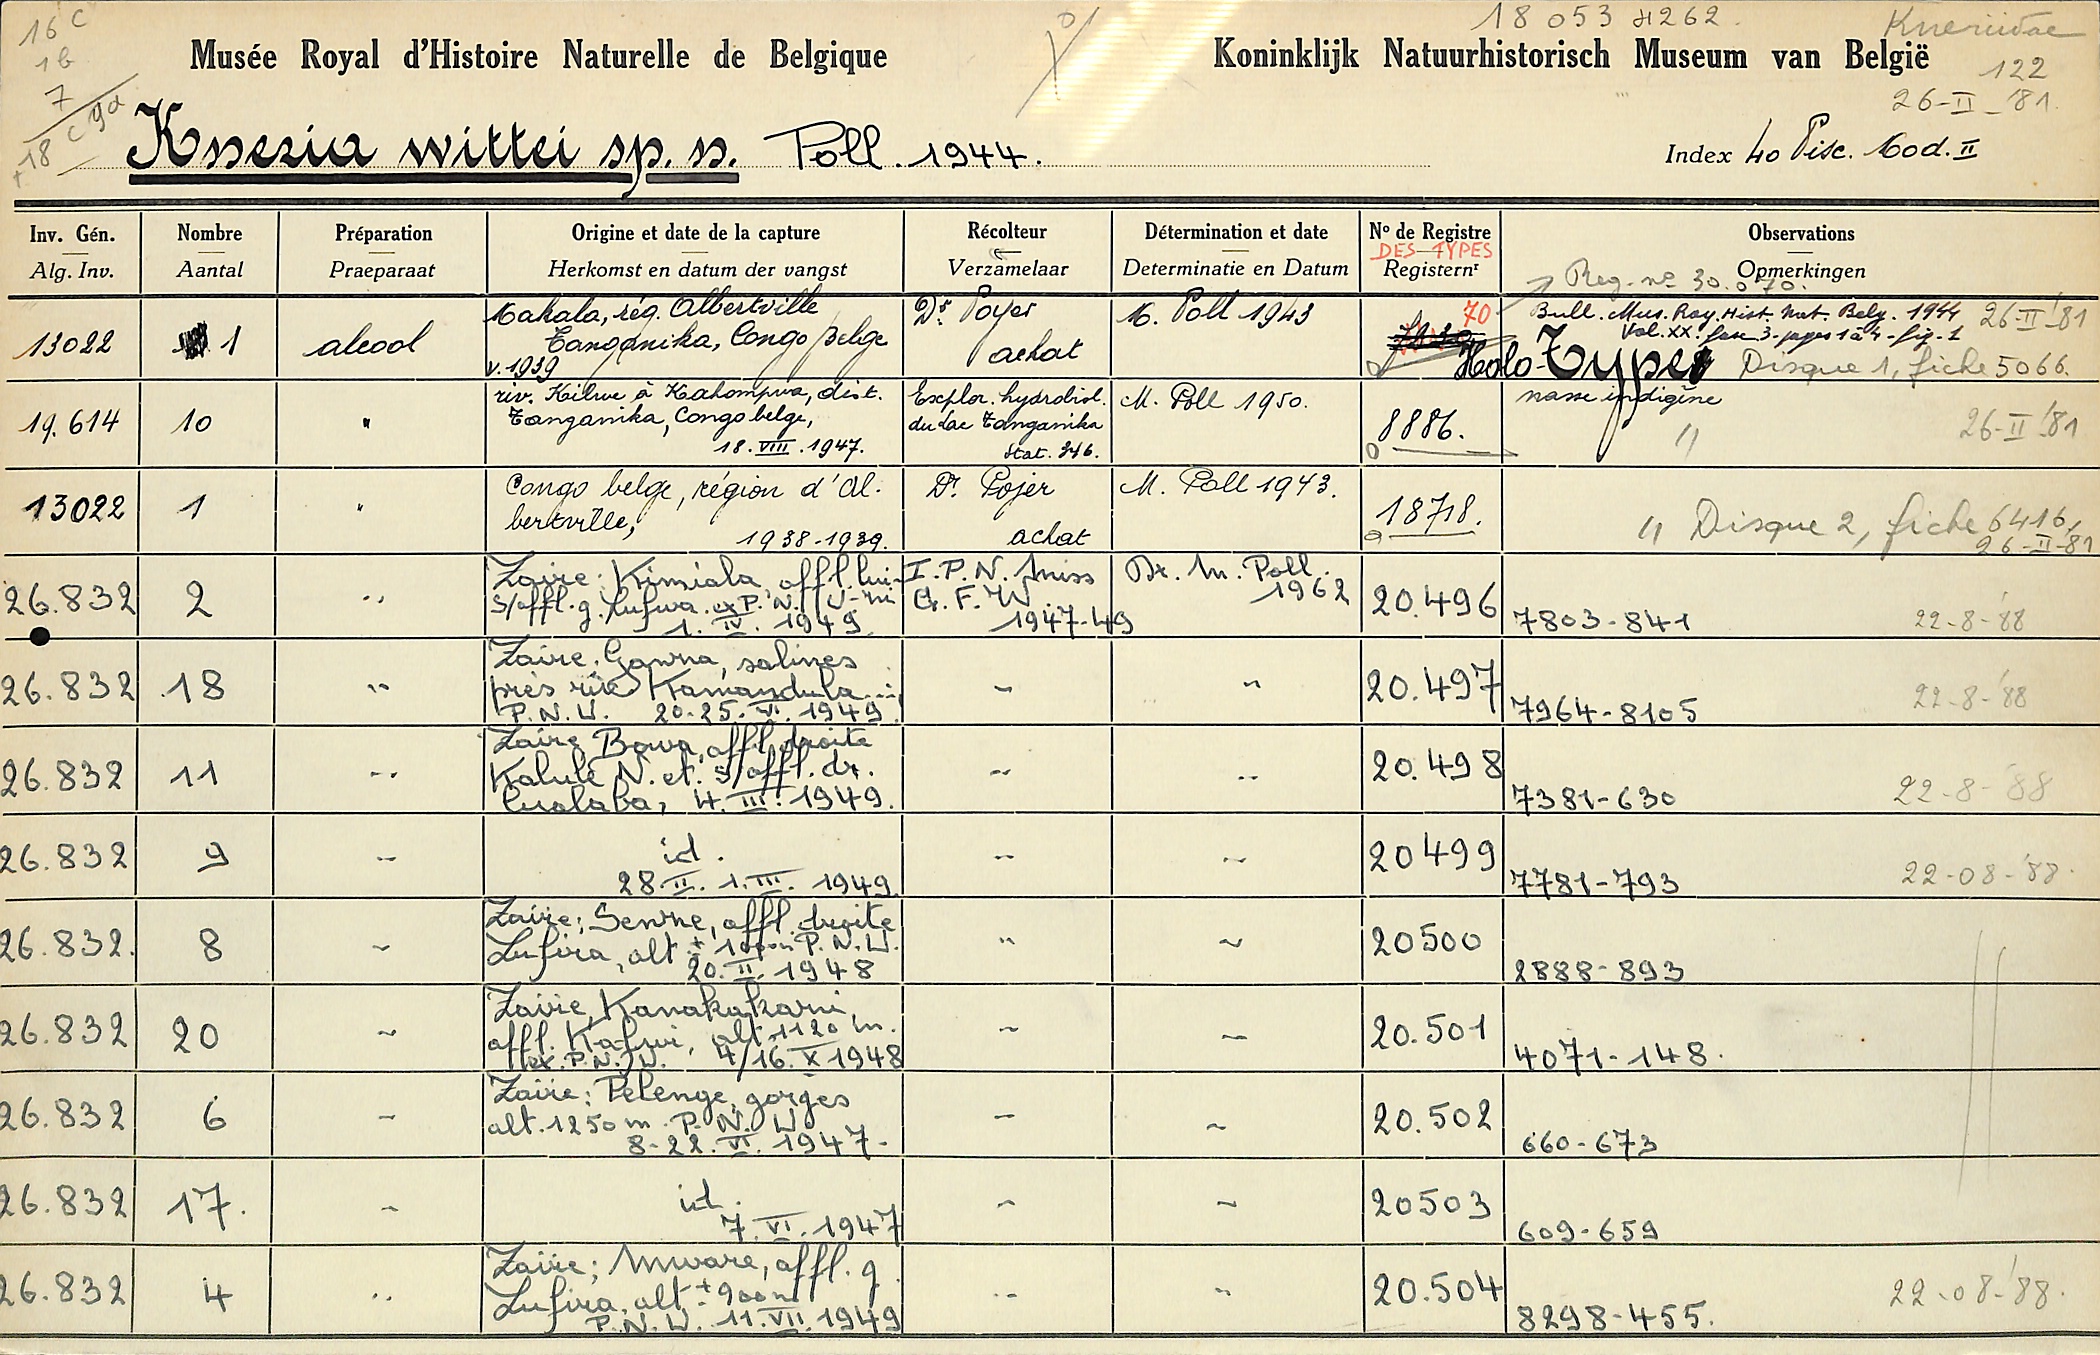 16 c
1b
7
c 9a
+18
18 053 262.
Kneriidae
Musée Royal d'Histoire Naturelle de Belgique
Koninklijk Natuurhistorisch Museum van België
122
26-II-'81.
Kneria wittei sp. n. Poll. 1944.
Index 40 Pisc. Mod. II
Inv. Gén. Nombre Préparation Origine et date de la capture Récolteur Détermination et date Nº de Registre Observations
DES TYPES
Alg. Inv. Aantal Praeparaat Herkomst en datum der vangst Verzamelaar Determinatie en Datum Registernr Opmerkingen
Reg. nº 30.070.
Makala, rég. Albertville Dr. Pojer M. Poll 1943 70 Bull. Mus. Roy. Hist. Nat. Belg. 1944 26-II-'81
Vol. XX. fasc. 3 - pages 1 à 4 - fig. 1
13022 1 alcool Tanganika, Congo belge achat Holo-Type Disque 1, fiche 5066.
V. 1939
riv. Kilwe à Kahompwa, dist. Explor. hydrobiol. M. Poll 1950. nasse indigène
19.614 10 " Tanganika, Congo belge, du lac Tanganika 8886. " 26-II-'81
18.VIII.1947. stat. 346.
Congo belge, région d'Al- Dr. Pojer M. Poll 1943.
13022 1 " bertville, 18718. " Disque 2, fiche 6416,
1938-1939. achat 26-II-81
Zaïre: Kimiala, affl. I.P.N. Miss Dr. M. Poll
26.832 2 " s/affl. g. Lufwa. ex P.N.U. G.F.W 1962 20.496
1.IV.1949 1947-49 7803-841 22-8-'88
Zaïre, Ganza, salines
26.832 18 " près riv. Kamandula " " 20.497
P.N.U. 20-25.VI.1949 7964-8105 22-8-'88
Zaïre Bowa, affl. droite
26.832 11 " Kalule N. et s/affl. dr. " " 20.498
Lualaba, 4.III.1949. 7381-630 22-8-'88
26.832 9 " id. " " 20499
28.II.1.III.1949 7781-793 22-08-'88.
Zaïre; Senze, affl. droite
26.832. 8 " Lufira, alt ± 1000m P.N.U. " " 20500
20.II.1948 2888-893
Zaïre, Kanakakazi,
26.832 20 " affl. Kafwi, alt. 1120 m. " " 20.501
ex. P.N.U. 4/16.X 1948 4071-148.
Zaïre: Pelenge, gorges
26.832 6 " alt. 1250 m. P.N.U. " " 20.502
8-22.VI.1947- 660-673
26.832 17. " id. " " 20503
7.VI.1947 609-659
Zaïre; Mware, affl. g
26.832 4 " Lufira, alt ± 900m " " 20.504
P.N.U. 11.VII.1949 8298-455. 22-08-'88.